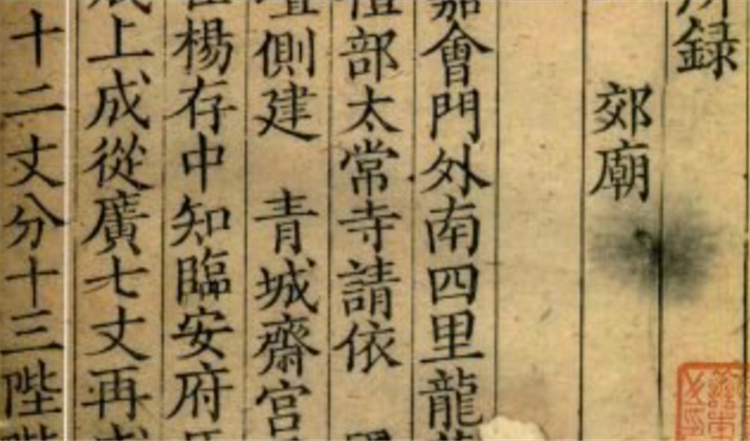 所錄
郊廟
嘉會門外南四里龍
禮部太常寺請依
壇側建 青城齋宮
楊存中知臨安府
上成從廣七丈再成
十二丈分十三陛陛